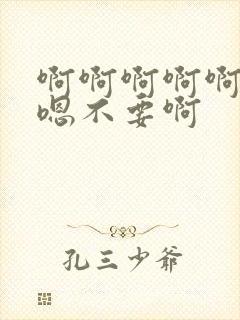 啊啊啊啊啊
嗯不要啊
孔三少爷